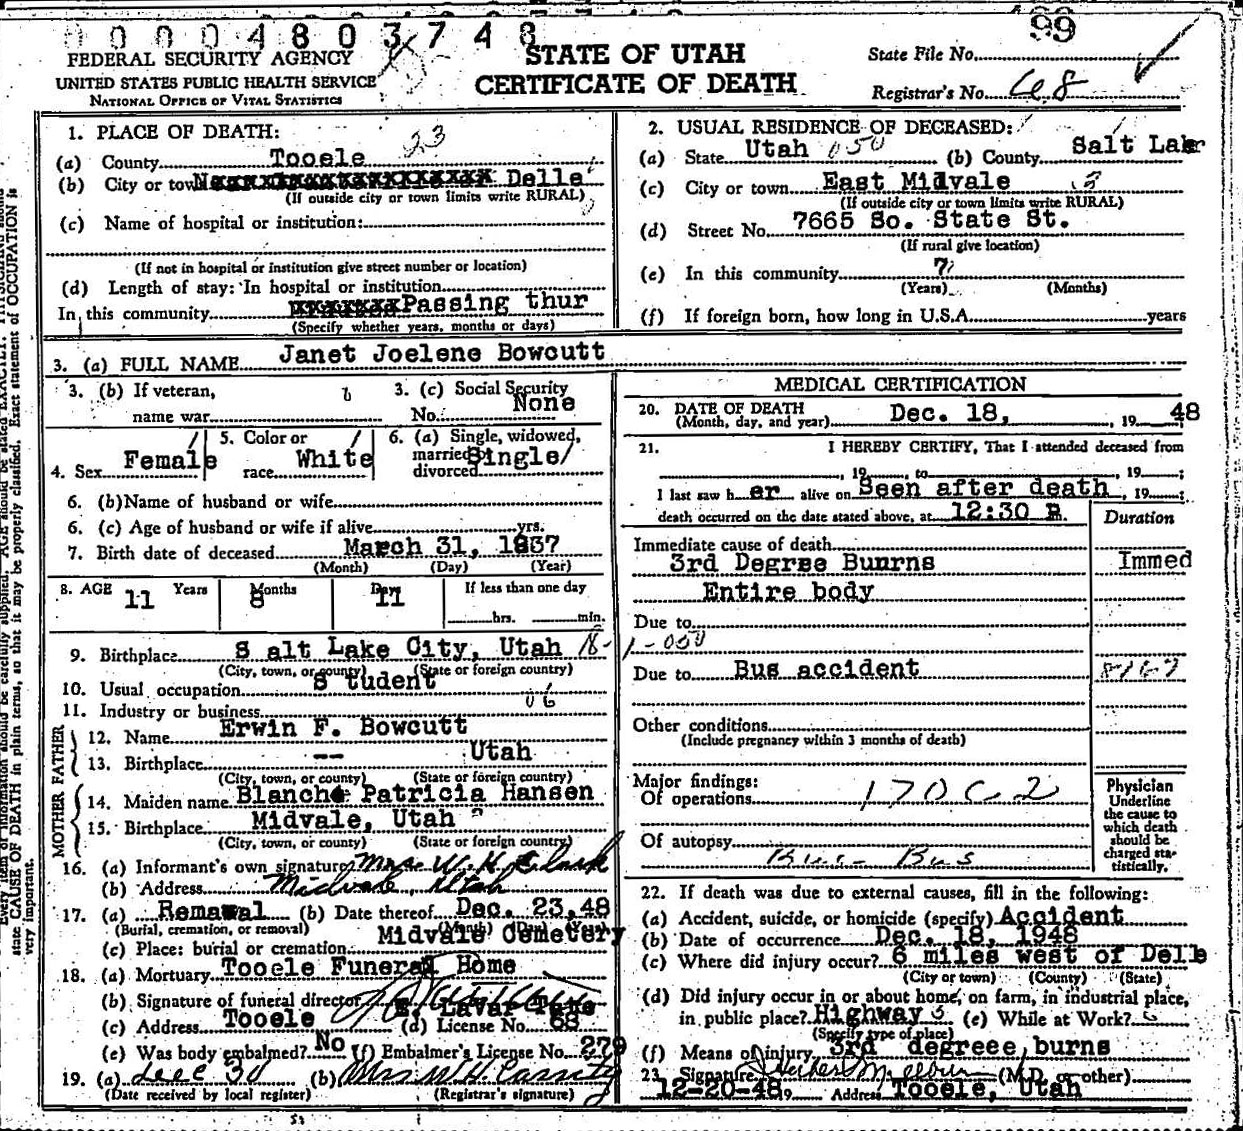 0 0 0 0 4 8 0 3 7 4 8
99
FEDERAL SECURITY AGENCY
UNITED STATES PUBLIC HEALTH SERVICE
NATIONAL OFFICE OF VITAL STATISTICS
STATE OF UTAH
CERTIFICATE OF DEATH
State File No.
Registrar's No. 68
1. PLACE OF DEATH: 23
(a) County Tooele
(b) City or town Delle
(If outside city or town limits write RURAL)
(c) Name of hospital or institution:
(If not in hospital or institution give street number or location)
(d) Length of stay: In hospital or institution
In this community Passing thur
(Specify whether years, months or days)
2. USUAL RESIDENCE OF DECEASED:
(a) State Utah 050 (b) County Salt Lake
(c) City or town East Midvale
(If outside city or town limits write RURAL)
(d) Street No. 7665 So. State St.
(If rural give location)
(e) In this community 7
(Years) (Months)
(f) If foreign born, how long in U.S.A. years
3. (a) FULL NAME Janet Joelene Bowcutt
3. (b) If veteran,
name war
3. (c) Social Security
No. None
4. Sex Female
5. Color or
race White
6. (a) Single, widowed,
married
divorced Single
6. (b) Name of husband or wife
6. (c) Age of husband or wife if alive yrs.
7. Birth date of deceased March 31, 1837
(Month) (Day) (Year)
8. AGE 11 Years 8 Months 11 Days If less than one day
hrs. min.
9. Birthplace S alt Lake City, Utah
(City, town, or county) (State or foreign country)
10. Usual occupation S tudent
11. Industry or business 06
FATHER
12. Name Erwin F. Bowcutt
13. Birthplace -- Utah
(City, town, or county) (State or foreign country)
MOTHER
14. Maiden name Blanche Patricia Hansen
15. Birthplace Midvale, Utah
(City, town, or county) (State or foreign country)
16. (a) Informant's own signature Mrs. W. H. Clark
(b) Address Midvale, Utah
17. (a) Remawal (b) Date thereof Dec. 23,48
(Burial, cremation, or removal) (Month) (Day) (Year)
(c) Place: burial or cremation Midvale Cemetery
18. (a) Mortuary Tooele Funeral Home
(b) Signature of funeral director
(c) Address Tooele (d) License No. 68
(e) Was body embalmed? No (f) Embalmer's License No. 279
19. (a) Dec 30 (b) Mrs W H Cassity
(Date received by local register) (Registrar's signature)
MEDICAL CERTIFICATION
20. DATE OF DEATH
(Month, day, and year) Dec. 18, , 19 48
21. I HEREBY CERTIFY, That I attended deceased from
, 19 to , 19 ;
I last saw h er alive on Seen after death , 19 ;
death occurred on the date stated above, at 12:30 P.
Duration
Immediate cause of death
3rd Degree Bunrns Immed
Entire body
Due to
1-050
Due to Bus accident
Other conditions
(Include pregnancy within 3 months of death)
Major findings:
Of operations 170C-2
Of autopsy
Bus
Physician
Underline
the cause to
which death
should be
charged sta-
tistically.
22. If death was due to external causes, fill in the following:
(a) Accident, suicide, or homicide (specify) Accident
(b) Date of occurrence Dec. 18, 1948
(c) Where did injury occur? 6 miles west of Delle
(City or town) (County) (State)
(d) Did injury occur in or about home, on farm, in industrial place,
in public place? Highway (e) While at Work?
(Specify type of place)
(f) Means of injury 3rd degreee burns
23. Signature (M.D. or other)
12-20-48 9 Address Tooele, Utah
state CAUSE OF DEATH in plain terms, so that it may be properly classified. Exact statement of OCCUPATION is
very important.